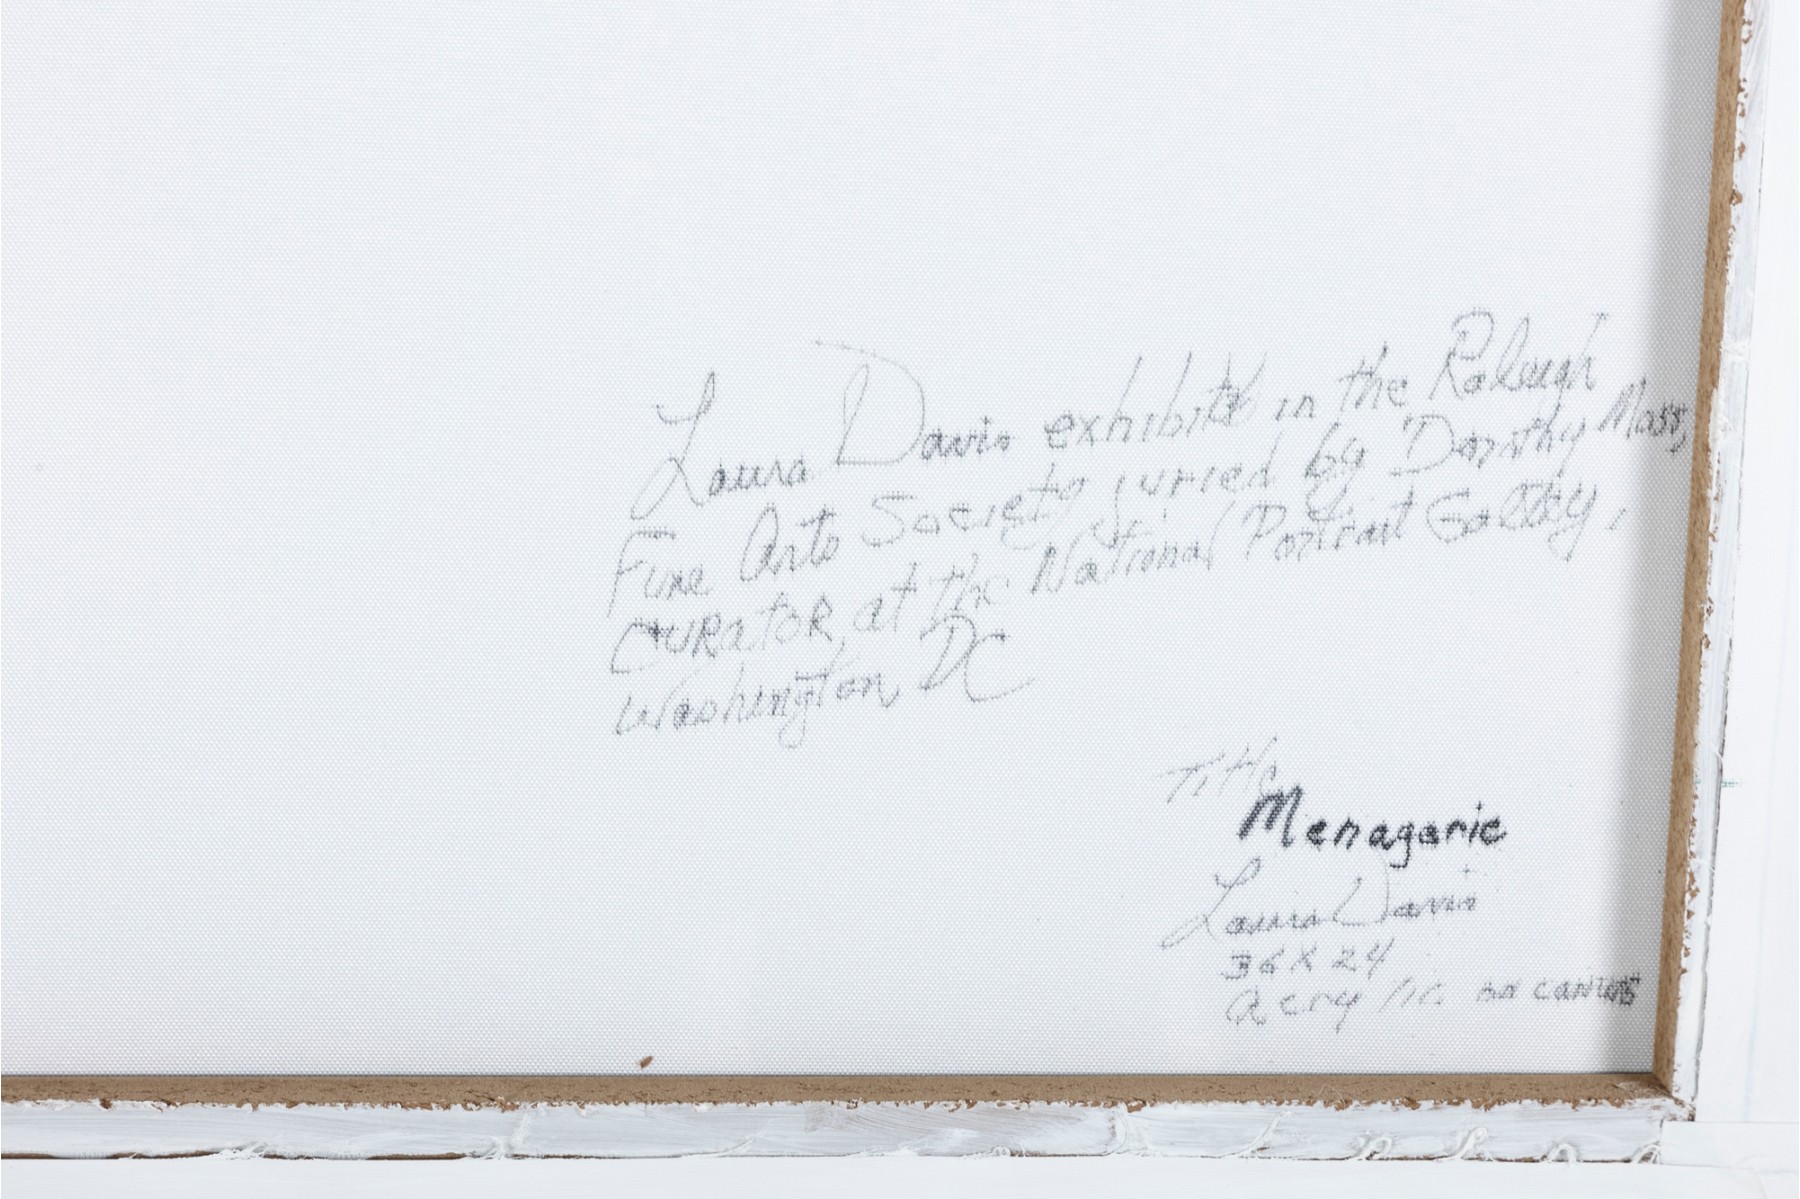 Laura Davis exhibits in the Raleigh
Fine Arts Society juried by Dorothy Moss,
CURatoR, at the National Portrait Gallery,
Washington, DC
Title
Menagerie
Laura Davis
36 X 24
acrylic on canvas